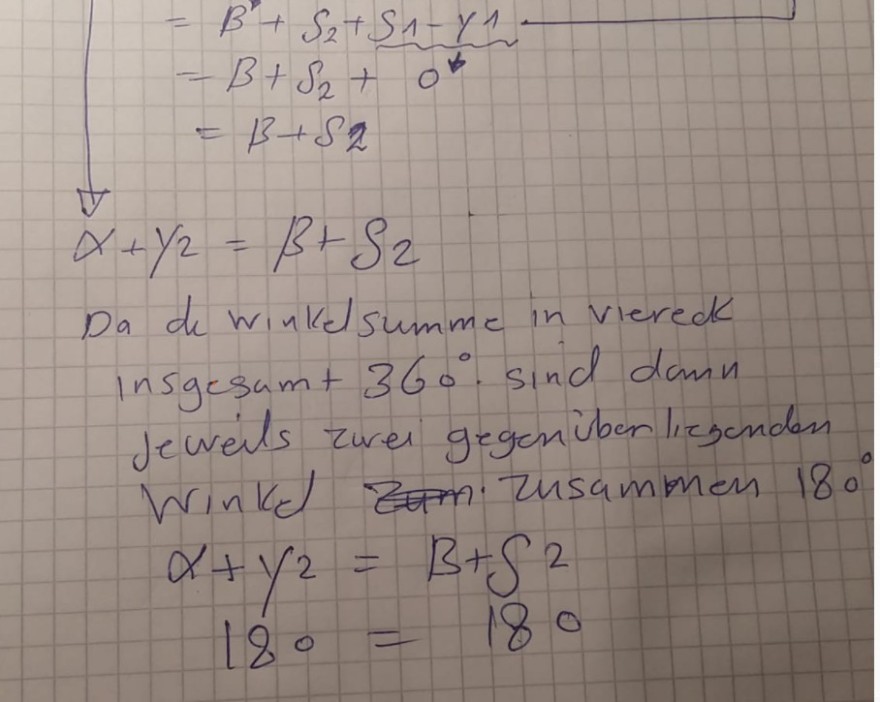 = B + S2 + S1 - Y1
= B + S2 + 0
= B + S2
α + Y2 = β + S2
Da de Winkelsumme in viereck
insgesamt 360°. sind dann
jeweils zwei gegenüberliegenden
Winkel zusammen 180°
α + Y2 = B + S2
180 = 180